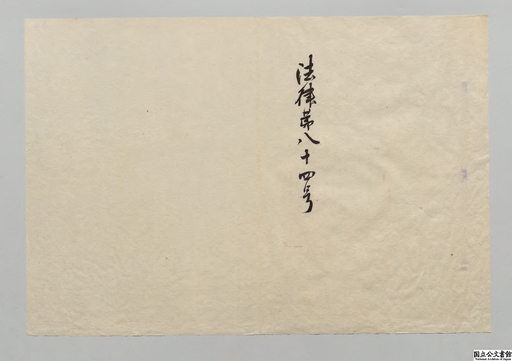 法律第八十四号
国立公文書館
National Archives of Japan